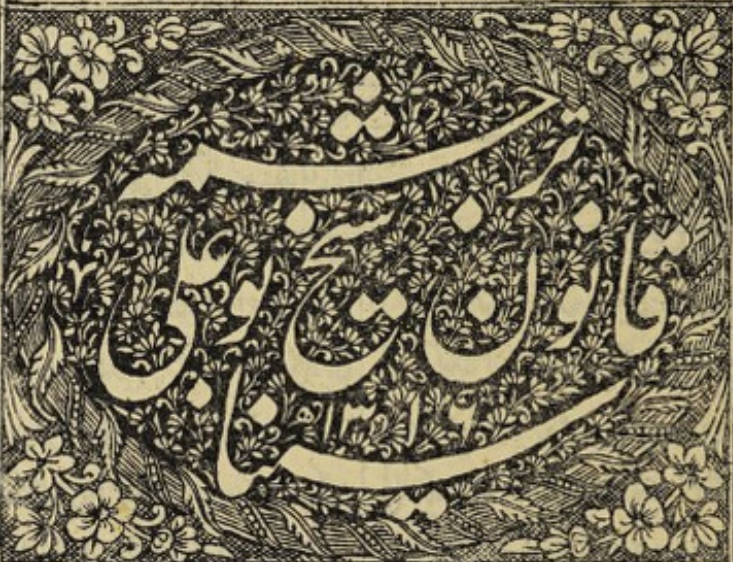 ترجمہ
قانون شیخ بو علی
سینا